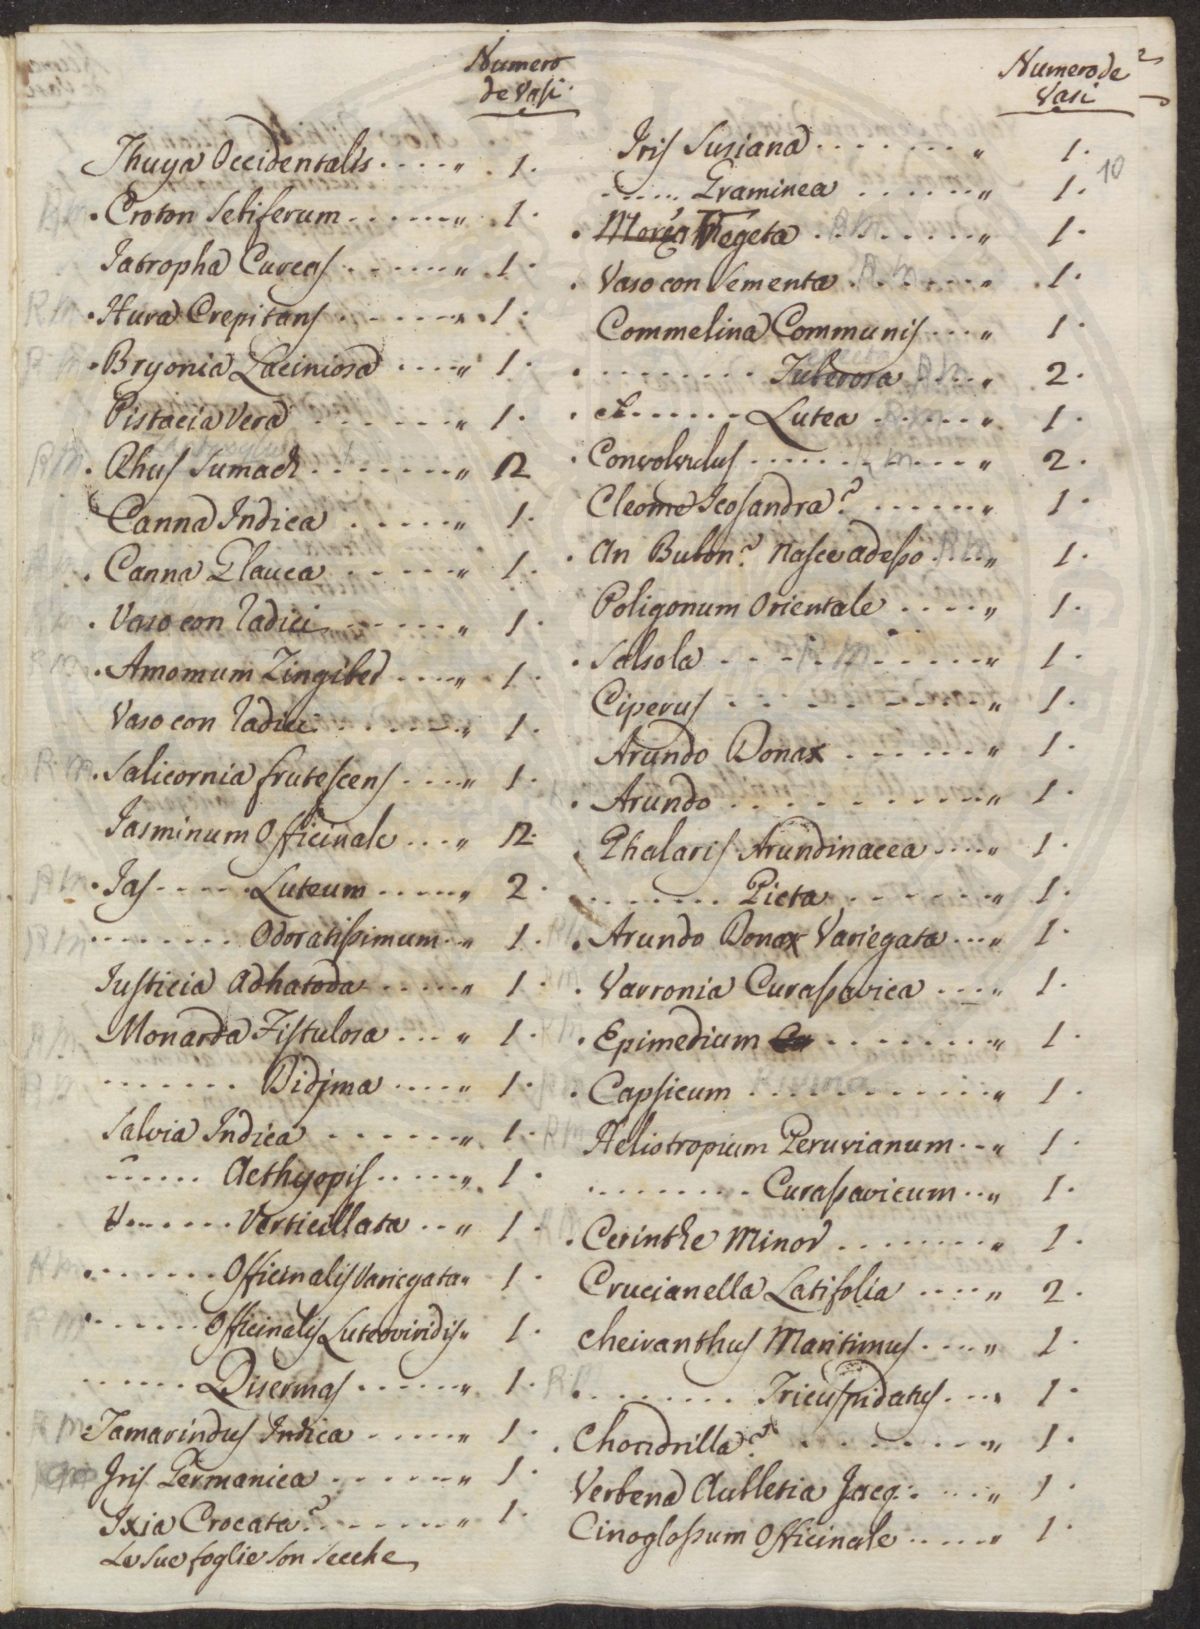 Numero
de Vasi
Thuya Occidentalis ..... „ 1.
. Croton Sebiferum ...... „ 1.
Jatropha Curcas ...... „ 1.
R m . Hura Crepitans ...... „ 1.
R m . Bryonia Laciniosa .... „ 1.
Pistacia Vera ....... „ 1.
R m . Rhus Sumach ....... „ 2
Canna Indica ...... „ 1.
. Canna Glauca ...... „ 1.
. Vaso con Radici ...... „ 1.
R m . Amomum Zingiber .... „ 1.
Vaso con Radici ...... „ 1.
R m . Salicornia frutescens .... „ 1.
Jasminum Officinale ... „ 2.
R m . Jas ...... Luteum ..... „ 2.
R m ........ Odoratissimum .. „ 1.
Justicia Adhatoda ..... „ 1.
Monarda Fistulosa ... „ 1.
........ Didjma .... „ 1.
Salvia Indica ...... „ 1.
...... Aethyopis ..... „ 1.
....... Verticillata .. „ 1.
R m ........ Officinalis Variegata „ 1.
R m ....... Officinalis Luteoviridis „ 1.
...... Disermas ...... „ 1.
R m . Tamarindus Indica ..... „ 1.
Iris Germanica ...... „ 1.
Ixia Crocata? ....... „ 1.
Le sue foglie son secche
Numero de
Vasi
2
10
Iris Susiana ....... „ 1.
...... Graminea ...... „ 1.
. Vegeta ........ „ 1.
. Vaso con Sementa R m ..... „ 1.
Commelina Communis ... „ 1.
. ........ Tuberosa R m .... „ 2.
. ....... Lutea R m ..... „ 1.
. Convolvulus ...... R m .... „ 2.
Cleome Icosandra? ...... „ 1.
. An Bubon? Nasce adesso R m .. „ 1.
Poligonum Orientale .... „ 1.
. Salsola .... R m ...... „ 1.
Ciperus .......... „ 1.
Arundo Donax ...... „ 1.
. Arundo .......... „ 1.
. Phalaris Arundinacea .... „ 1.
....... Picta ...... „ 1.
R m . Arundo Donax Variegata ... „ 1.
R m . Varronia Curassavica .... „ 1.
. Epimedium ........ „ 1.
. Capsicum ........... „ 1.
R m Heliotropium Peruvianum .. „ 1.
......... Curassavicum .. „ 1.
. Cerinthe Minor ........ „ 1.
Crucianella Latifolia .... „ 2.
Cheiranthus Maritimus .... „ 1.
. ........ Tricuspidatus ... „ 1.
. Chondrilla? ........ „ 1.
Verbena Aubletia Jacq. .... „ 1.
Cinoglossum Officinale ..... „ 1.